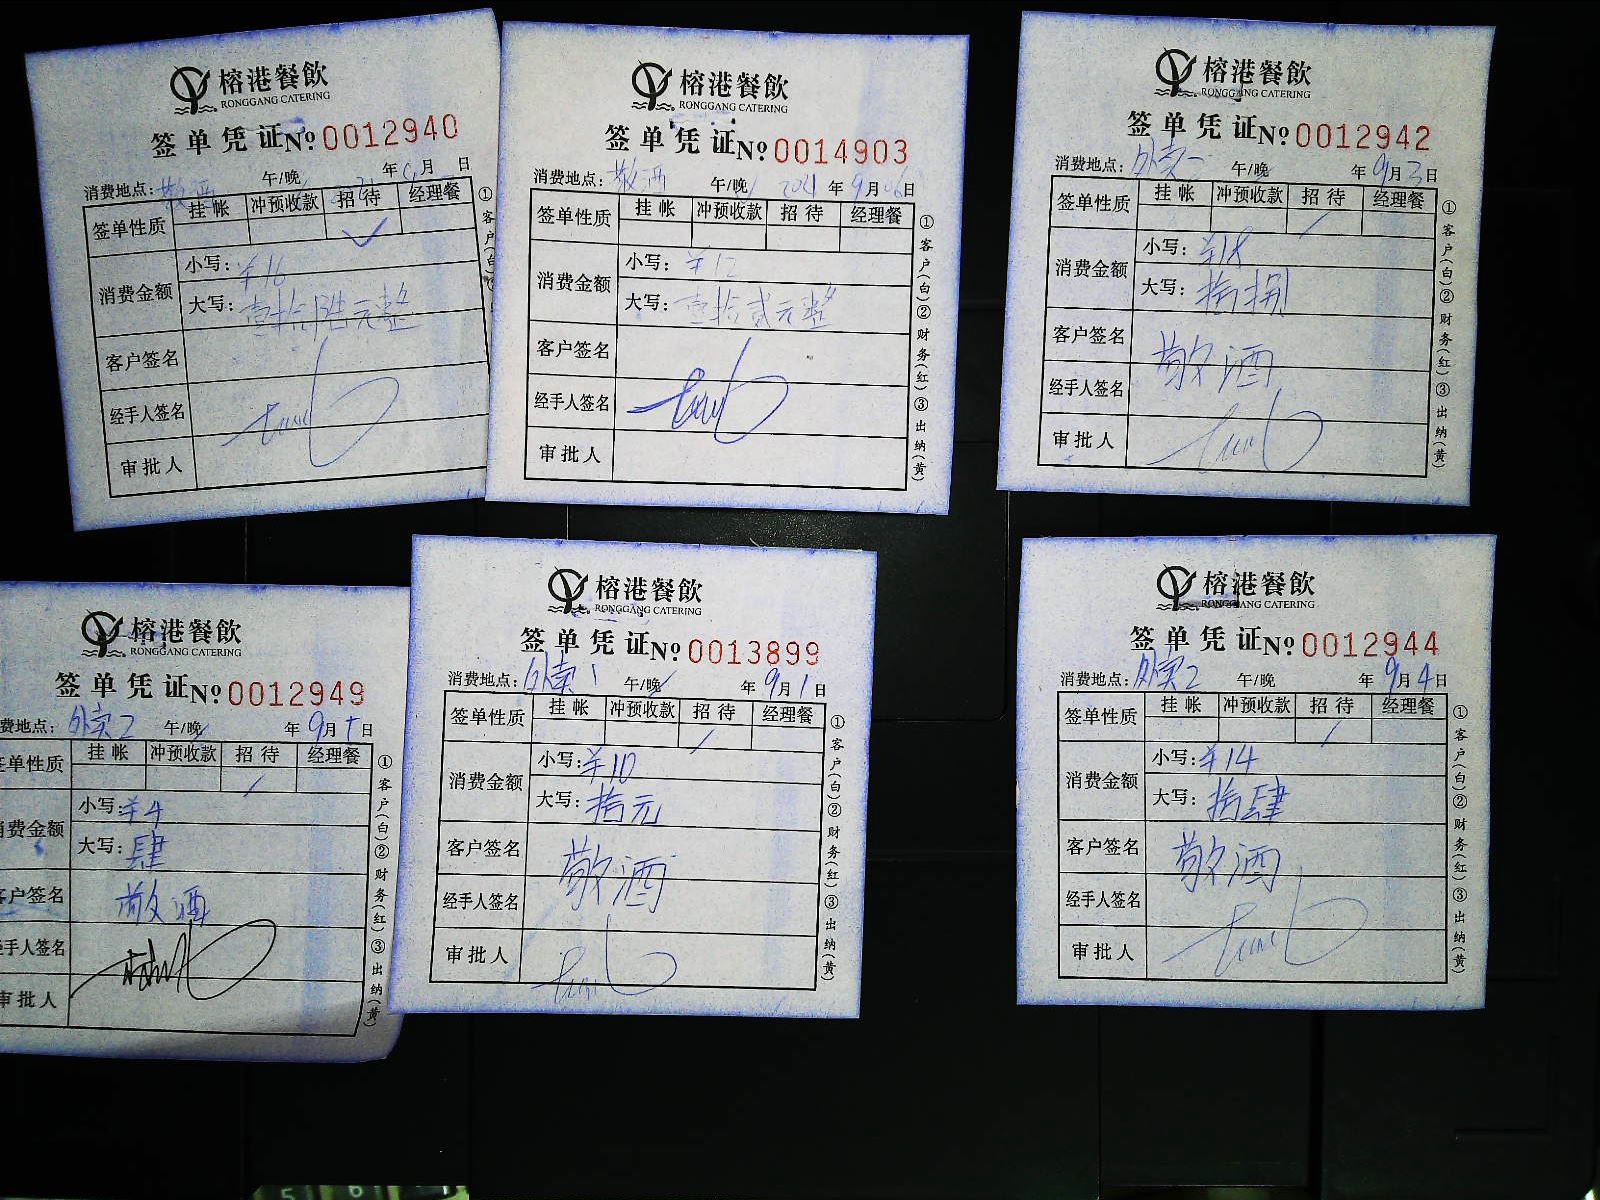 榕港餐飲
RONGGANG CATERING
签单凭证№0012940
消费地点：敬酒 午/晚 年9月 日
签单性质 挂帐 冲预收款 招待 经理餐
✓
消费金额 小写：¥16
大写：壹拾陆元整
客户签名
经手人签名
审批人
①客户(白)
榕港餐飲
RONGGANG CATERING
签单凭证№0014903
消费地点：敬酒 午/晚 2021年9月06日
签单性质 挂帐 冲预收款 招待 经理餐
消费金额 小写：¥12
大写：壹拾贰元整
客户签名
经手人签名
审批人
①客户(白)②财务(红)③出纳(黄)
榕港餐飲
RONGGANG CATERING
签单凭证№0012942
消费地点：外卖二 午/晚 年9月3日
签单性质 挂帐 冲预收款 招待 经理餐
消费金额 小写：¥18
大写：拾捌
客户签名 敬酒
经手人签名
审批人
①客户(白)②财务(红)③出纳(黄)
榕港餐飲
RONGGANG CATERING
签单凭证№0012949
费地点：外卖2 午/晚 年9月 日
单性质 挂帐 冲预收款 招待 经理餐
消费金额 小写：¥4
大写：肆
客户签名 敬酒
经手人签名
审批人
①客户(白)②财务(红)③出纳(黄)
榕港餐飲
RONGGANG CATERING
签单凭证№0013899
消费地点：外卖1 午/晚 年9月1日
签单性质 挂帐 冲预收款 招待 经理餐
消费金额 小写：¥10
大写：拾元
客户签名 敬酒
经手人签名
审批人
①客户(白)②财务(红)③出纳(黄)
榕港餐飲
RONGGANG CATERING
签单凭证№0012944
消费地点：外卖2 午/晚 年9月4日
签单性质 挂帐 冲预收款 招待 经理餐
消费金额 小写：¥14
大写：拾肆
客户签名 敬酒
经手人签名
审批人
①客户(白)②财务(红)③出纳(黄)
5 6